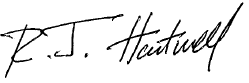 R. J. Hartwell